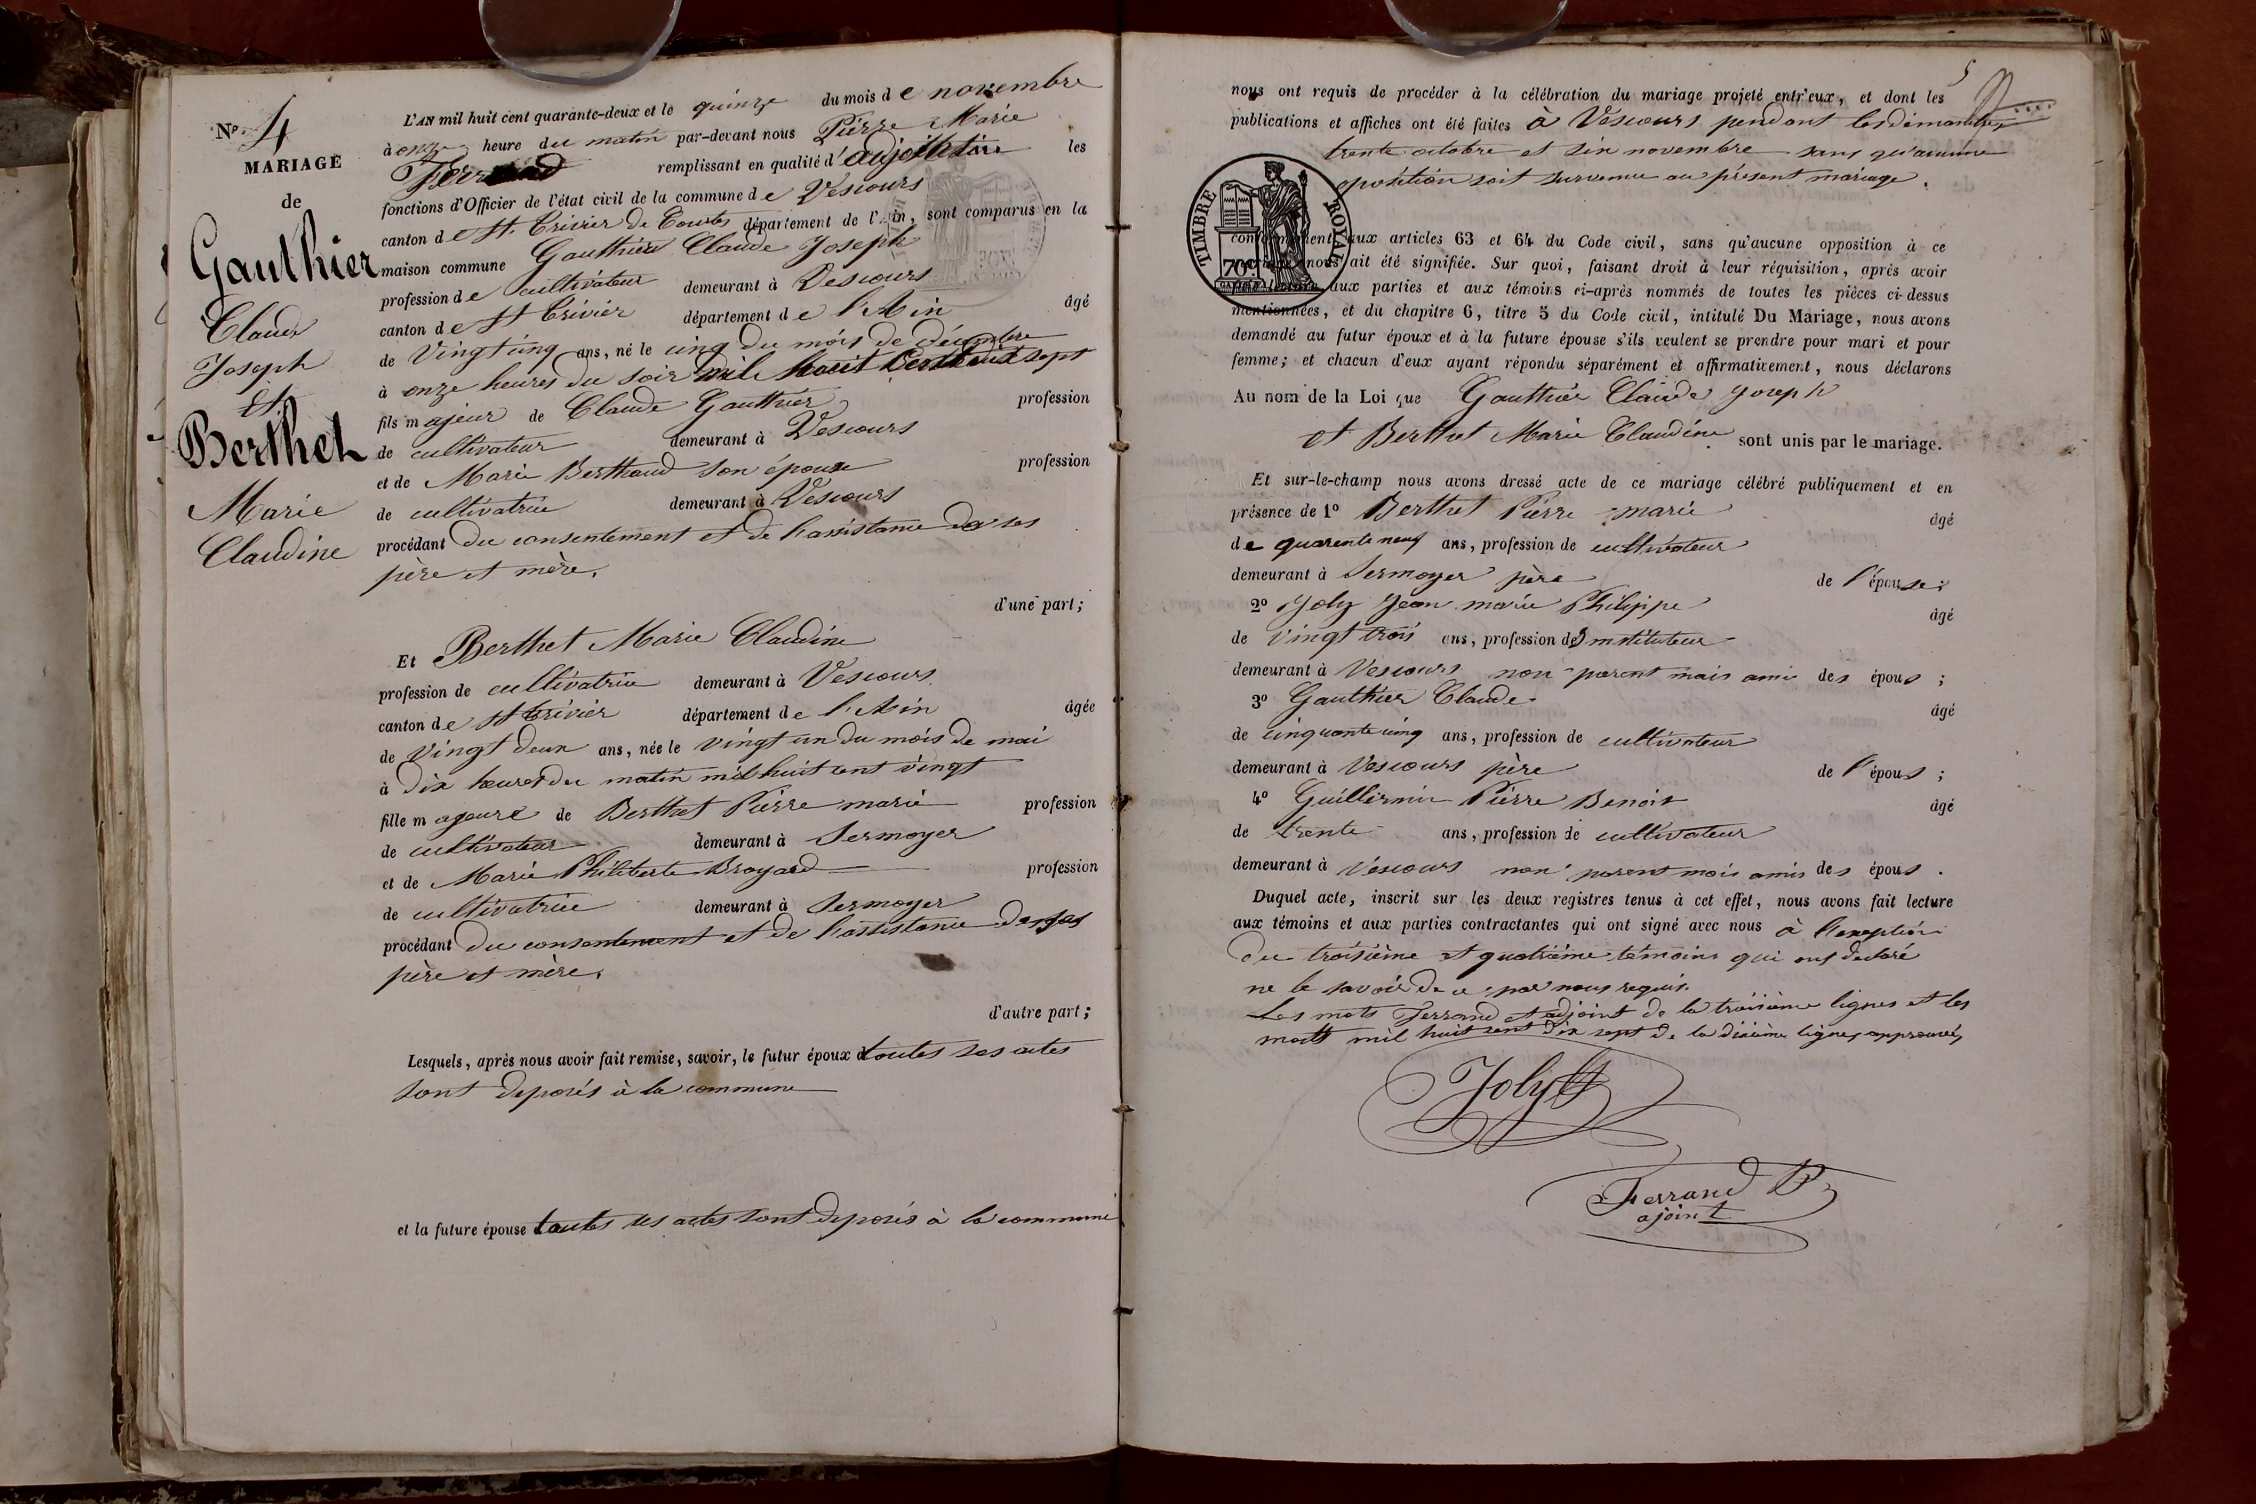 N° 4
MARIAGE
de
Gauthier
Claude
Joseph
Et
Berthet
Marie
Claudine
L'AN mil huit cent quarante-deux et le quinze du mois de novembre
à onze heure du matin par-devant nous Pierre Marie
Ferrand remplissant en qualité d'adjoint les
fonctions d'Officier de l'état civil de la commune de Vescours
canton de St. Trivier de Courtes département de l'Ain, sont comparus en la
maison commune Gauthier Claude Joseph
profession de cultivateur demeurant à Vescours
canton de St Trivier département de l'Ain âgé
de Vingt cinq ans, né le cinq du mois de décembre
à onze heures du soir mil huit cent dix sept
fils majeur de Claude Gauthier profession
de cultivateur demeurant à Vescours
et de Marie Berthaud son épouse profession
de cultivatrice demeurant à Vescours
procédant du consentement et de l'assistance de ses
père et mère.
d'une part;
Et Berthet Marie Claudine
profession de cultivatrice demeurant à Vescours
canton de St Trivier département de l'Ain âgée
de Vingt deux ans, née le vingt un du mois de mai
à dix heures du matin mil huit cent vingt
fille mageure de Berthet Pierre marie profession
de cultivateur demeurant à Sermoyer
et de Marie Philiberte Broyard profession
de cultivatrice demeurant à Sermoyer
procédant du consentement et de l'assistance de ses
père et mère.
d'autre part;
Lesquels, après nous avoir fait remise, savoir, le futur époux d toutes ses actes
sont deposés à la commune
et la future épouse toutes ses actes sont deposés à la commune
5
nous ont requis de procéder à la célébration du mariage projeté entr'eux, et dont les
publications et affiches ont été faites à Vescours pendant les dimanches
trente octobre et six novembre sans qu'aucune
oposition soit survenue au présent mariage.
TIMBRE ROYAL
70c
conformément aux articles 63 et 64 du Code civil, sans qu'aucune opposition à ce
mariage nous ait été signifiée. Sur quoi, faisant droit à leur réquisition, après avoir
fait lecture aux parties et aux témoins ci-après nommés de toutes les pièces ci-dessus
mentionnées, et du chapitre 6, titre 5 du Code civil, intitulé Du Mariage, nous avons
demandé au futur époux et à la future épouse s'ils veulent se prendre pour mari et pour
femme; et chacun d'eux ayant répondu séparément et affirmativement, nous déclarons
Au nom de la Loi que Gauthier Claude Joseph
et Berthet Marie Claudine sont unis par le mariage.
Et sur-le-champ nous avons dressé acte de ce mariage célébré publiquement et en
présence de 1° Berthet Pierre marie âgé
de quarente neuf ans, profession de cultivateur
demeurant à Sermoyer père de l'épouse;
2° Joly Jean marie Philippe âgé
de vingt trois ans, profession d'Instituteur
demeurant à Vescours non parent mais ami des épous;
3° Gauthier Claude âgé
de cinquante cinq ans, profession de cultivateur
demeurant à Vescours père de l'épous;
4° Guillermin Pierre Benoit âgé
de trente ans, profession de cultivateur
demeurant à Vescours non parent mais amis des épous.
Duquel acte, inscrit sur les deux registres tenus à cet effet, nous avons fait lecture
aux témoins et aux parties contractantes qui ont signé avec nous à l'exception
du troisième et quatrième témoins qui ont declaré
ne le savoir de ce par nous requis.
Les mots Ferrand et adjoint de la troisième lignes et les
mots mil huit cent dix sept de la dixième lignes approuvés
Joly
Ferrand P
ajoint